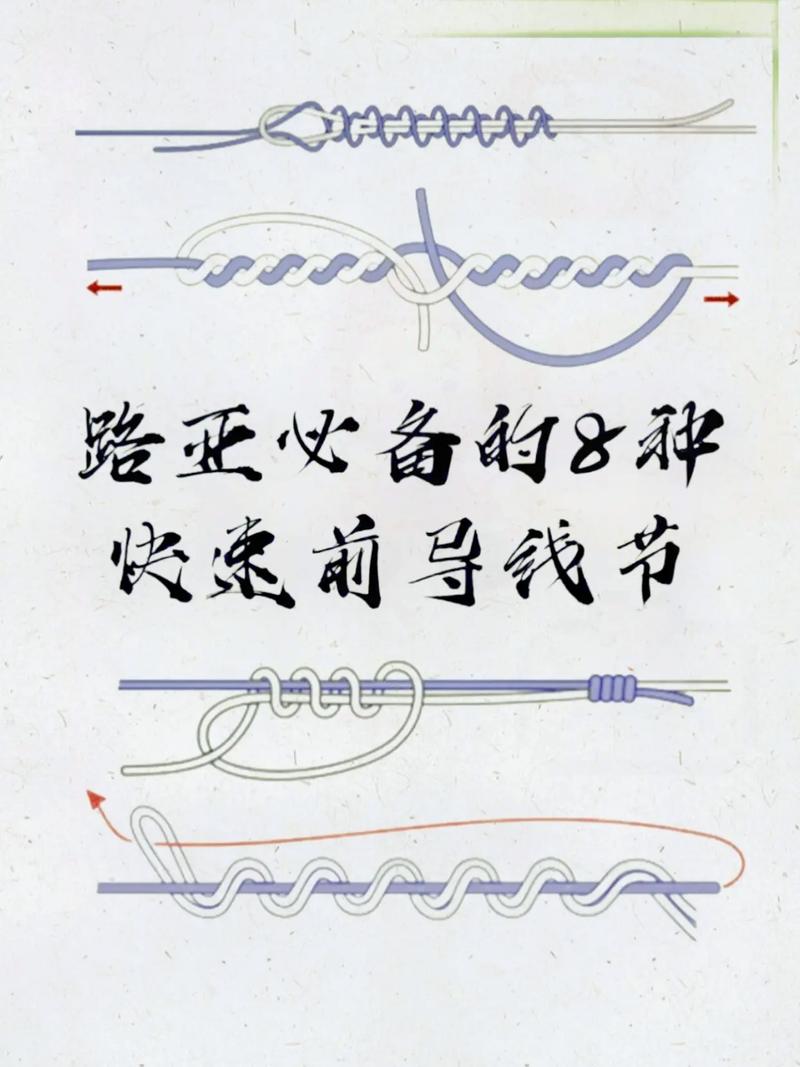 路亚必备的8种
快速前导线节